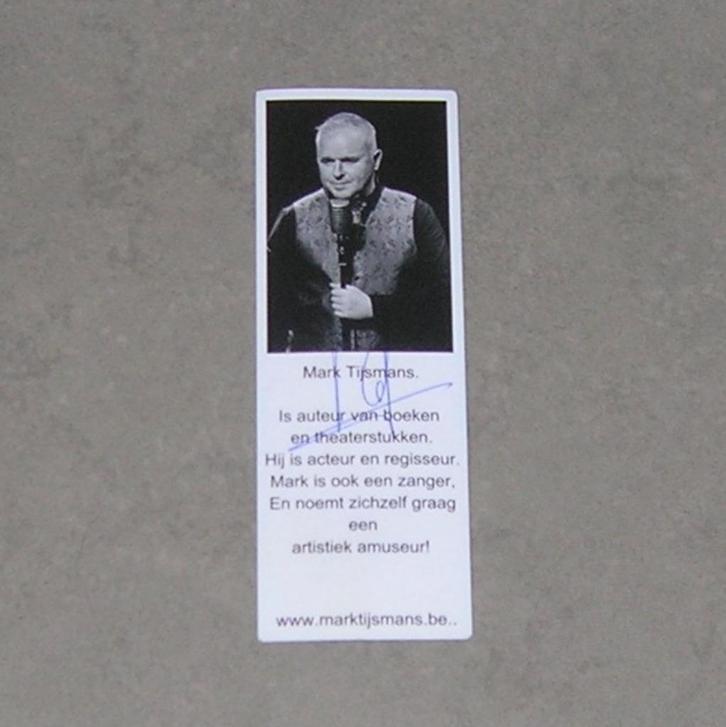 Mark Tijsmans.
Is auteur van boeken
en theaterstukken.
Hij is acteur en regisseur.
Mark is ook een zanger,
En noemt zichzelf graag
een
artistiek amuseur!
www.marktijsmans.be..